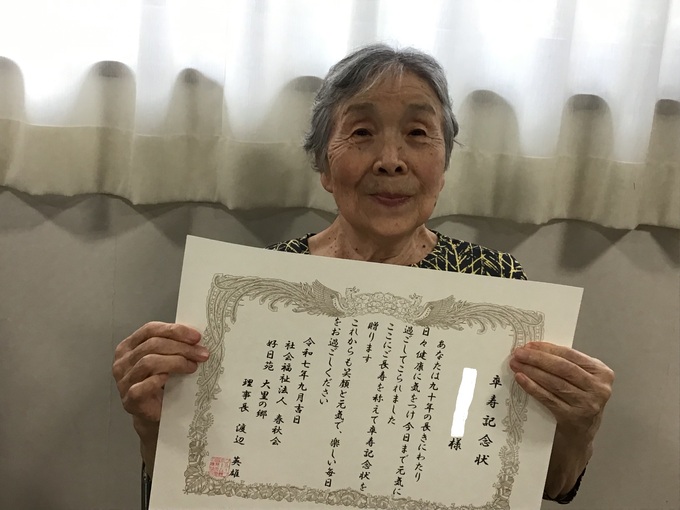 卒寿記念状
様
あなたは九十年の長きにわたり
日々健康に気をつけ今日まで元気に
過ごしてこられました
ここにご長寿を称えて卒寿記念状を
贈ります
これからも笑顔と元気で、楽しい毎日
をお過ごしください
令和七年九月吉日
社会福祉法人 春秋会
好日苑 大里の郷
理事長 渡辺 英雄